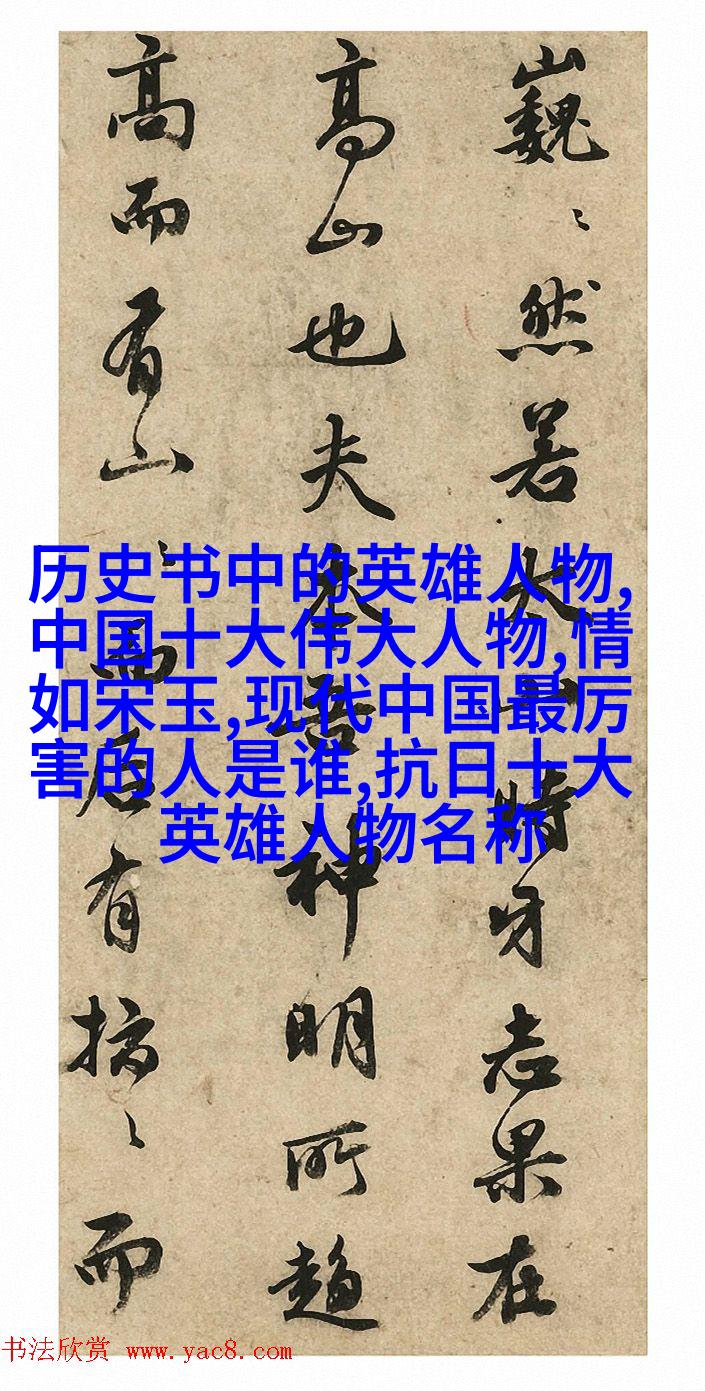 巍〻然若大山時牙志果在
高山也夫太音神明所趨
高而有山〻而后有搞〻而
历史书中的英雄人物,
中国十大伟大人物,情
如宋玉,现代中国最厉
害的人是谁,抗日十大
英雄人物名称
书法欣赏 www.yac8.com